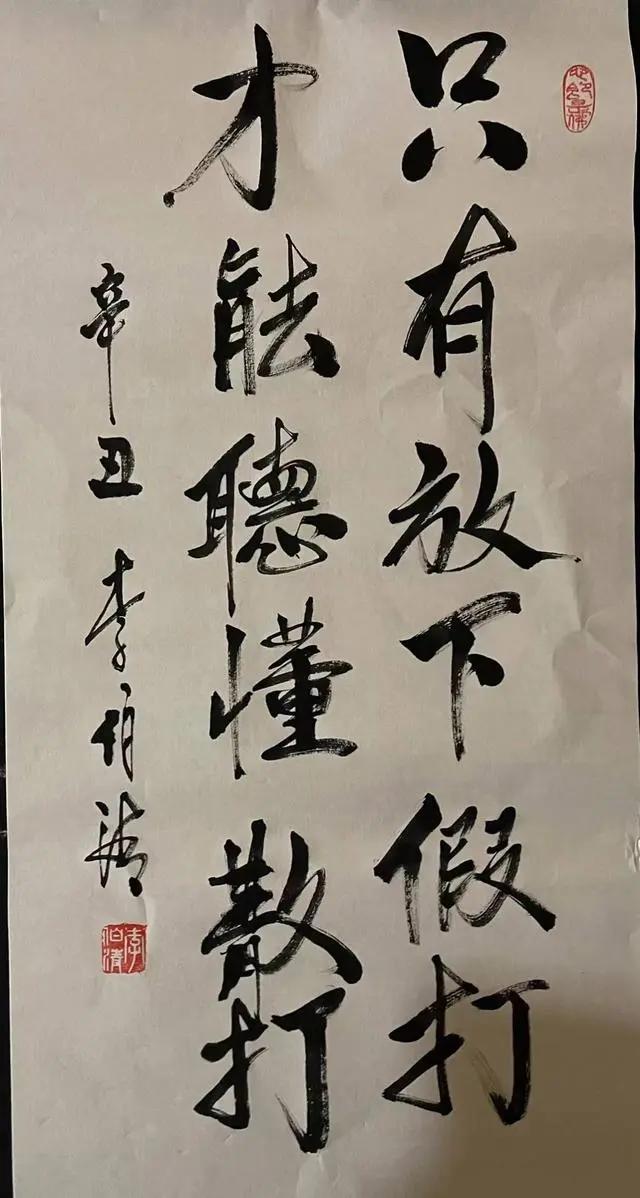 只有放下假打
才能聽懂散打
辛丑 李伯清
李伯清